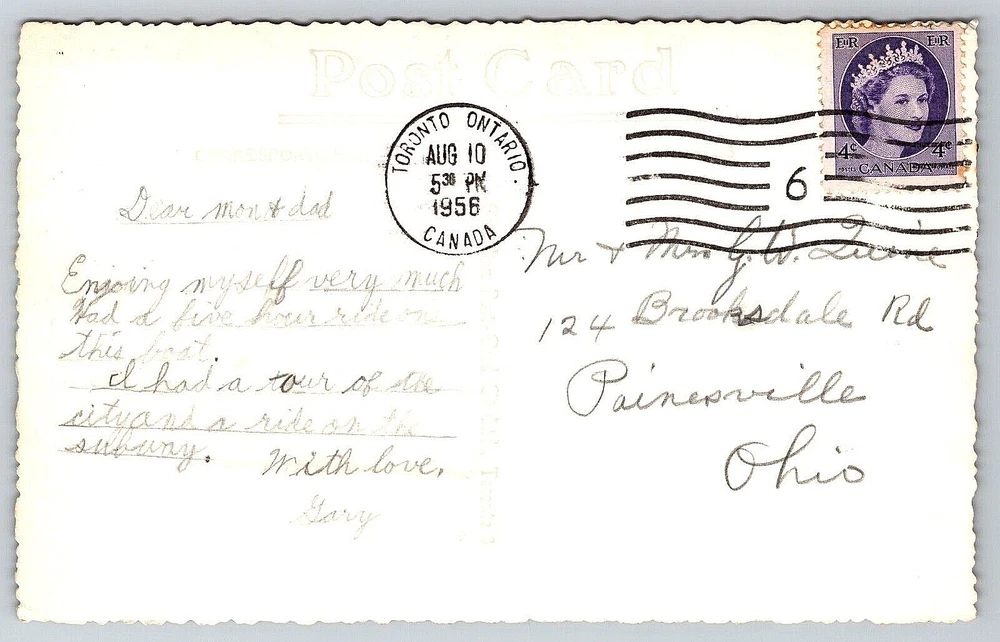 Post Card
TORONTO ONTARIO.
AUG 10
5 30 PM
1956
CANADA
6
EIIR EIIR
4¢ 4¢
CANADA
Dear mon & dad
Enjoing myself very much
Had a five hour ride on
this boat.
I had a tour of the
city and a ride on the
subway.
With love,
Gary
Mr & Mrs G. W.
124 Brooksdale Rd
Painesville
Ohio